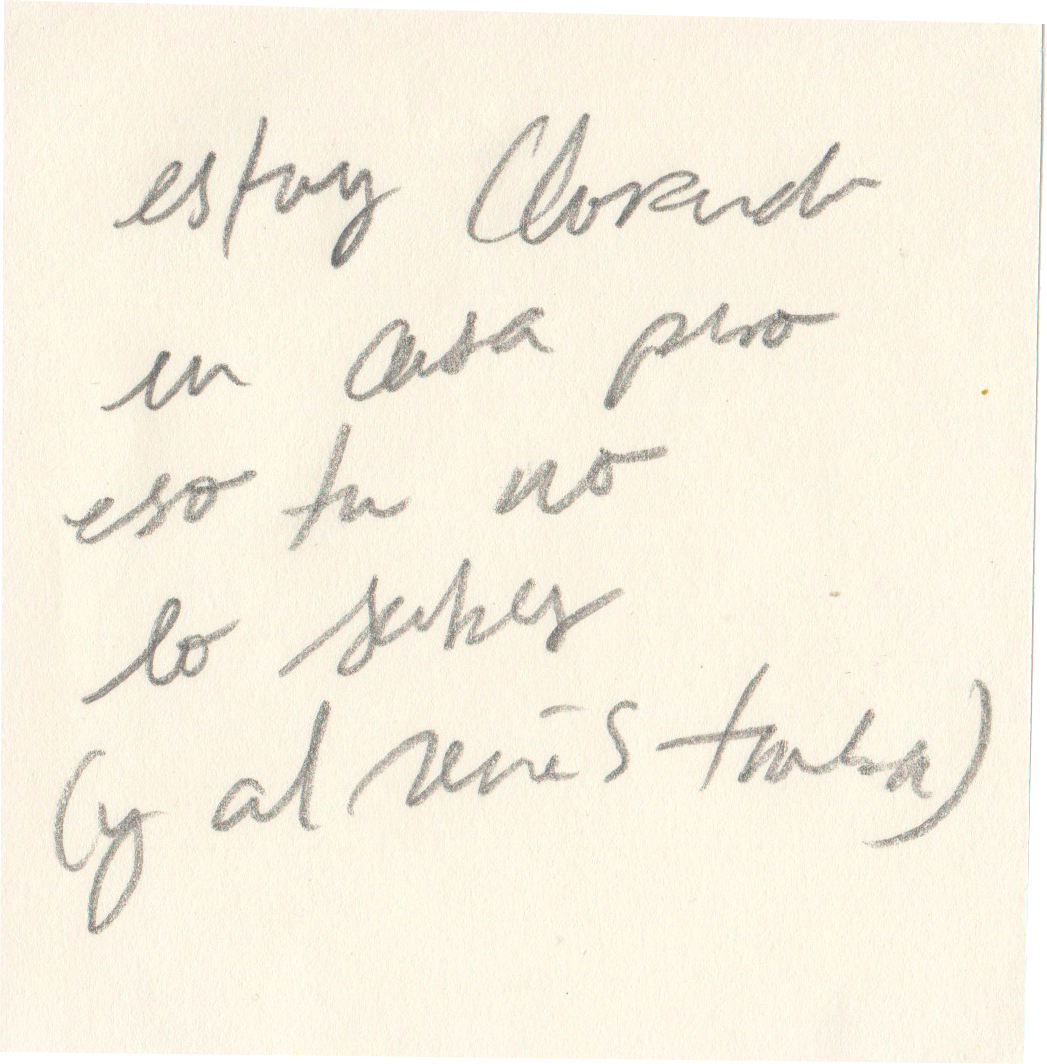 estoy llorando
en casa pero
eso tu no
lo sabes
(y al revés